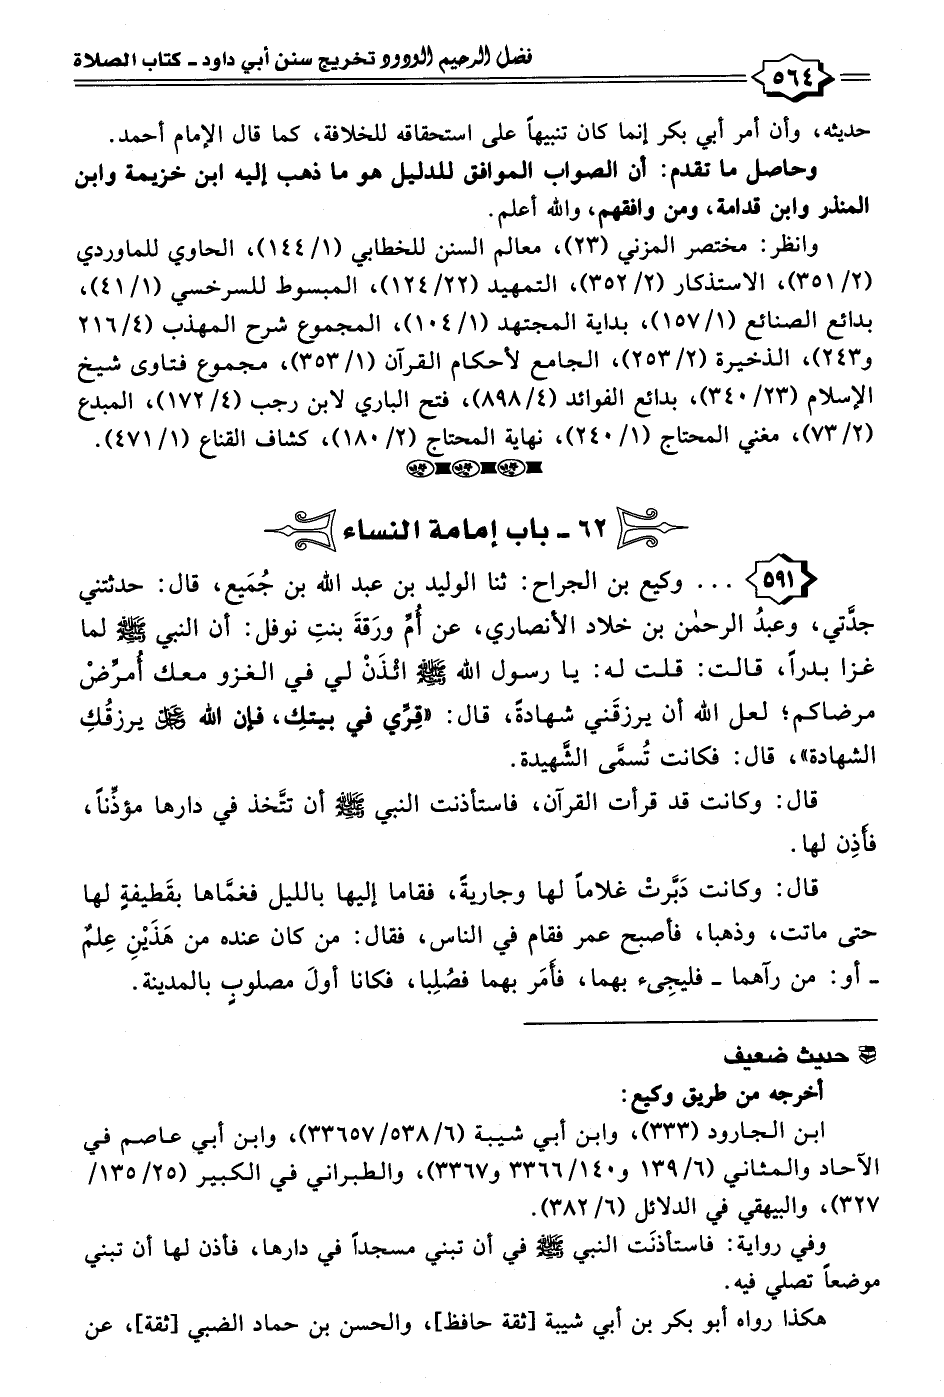 ٥٦٤ فضل الرحيم الودود تخريج سنن أبي داود - كتاب الصلاة
حديثه، وأن أمر أبي بكر إنما كان تنبيهاً على استحقاقه للخلافة، كما قال الإمام أحمد.
وحاصل ما تقدم: أن الصواب الموافق للدليل هو ما ذهب إليه ابن خزيمة وابن
المنذر وابن قدامة، ومن وافقهم، والله أعلم.
وانظر: مختصر المزني (٢٣)، معالم السنن للخطابي (١/ ١٤٤)، الحاوي للماوردي
(٢/ ٣٥١)، الاستذكار (٢/ ٣٥٢)، التمهيد (٢٢/ ١٢٤)، المبسوط للسرخسي (١/ ٤١)،
بدائع الصنائع (١/ ١٥٧)، بداية المجتهد (١/ ١٠٤)، المجموع شرح المهذب (٤/ ٢١٦
و٢٤٣)، الذخيرة (٢/ ٢٥٣)، الجامع لأحكام القرآن (١/ ٣٥٣)، مجموع فتاوى شيخ
الإسلام (٢٣/ ٣٤٠)، بدائع الفوائد (٤/ ٨٩٨)، فتح الباري لابن رجب (٤/ ١٧٢)، المبدع
(٢/ ٧٣)، مغني المحتاج (١/ ٢٤٠)، نهاية المحتاج (٢/ ١٨٠)، كشاف القناع (١/ ٤٧١).
٦٢ - باب إمامة النساء
٥٩١ ... وكيع بن الجراح: ثنا الوليد بن عبد الله بن جُمَيع، قال: حدثتني
جدَّتي، وعبدُ الرحمٰن بن خلاد الأنصاري، عن أُمِّ ورَقةَ بنتِ نوفل: أن النبي ﷺ لما
غزا بدراً، قالت: قلت له: يا رسول الله ﷺ ائْذَنْ لي في الغزو معك أُمرِّضْ
مرضاكم؛ لعل الله أن يرزقَني شهادةً، قال: «قِرِّي في بيتكِ، فإن الله ﷻ يرزقُكِ
الشهادة»، قال: فكانت تُسمَّى الشَّهيدة.
قال: وكانت قد قرأت القرآن، فاستأذنت النبي ﷺ أن تتَّخذ في دارها مؤذِّناً،
فأَذِن لها.
قال: وكانت دَبَّرتْ غلاماً لها وجاريةً، فقاما إليها بالليل فغمَّاها بقَطيفةٍ لها
حتى ماتت، وذهبا، فأصبح عمر فقام في الناس، فقال: من كان عنده من هَذَيْنِ عِلمٌ
- أو: من رآهما - فليجِىء بهما، فأَمَر بهما فصُلِبا، فكانا أولَ مصلوبٍ بالمدينة.
حديث ضعيف
أخرجه من طريق وكيع:
ابن الجارود (٣٣٣)، وابن أبي شيبة (٦/ ٥٣٨/ ٣٣٦٥٧)، وابن أبي عاصم في
الآحاد والمثاني (٦/ ١٣٩ و١٤٠/ ٣٣٦٦ و٣٣٦٧)، والطبراني في الكبير (٢٥/ ١٣٥/
٣٢٧)، والبيهقي في الدلائل (٦/ ٣٨٢).
وفي رواية: فاستأذنَت النبي ﷺ في أن تبني مسجداً في دارها، فأذن لها أن تبني
موضعاً تصلي فيه.
هكذا رواه أبو بكر بن أبي شيبة [ثقة حافظ]، والحسن بن حماد الضبي [ثقة]، عن